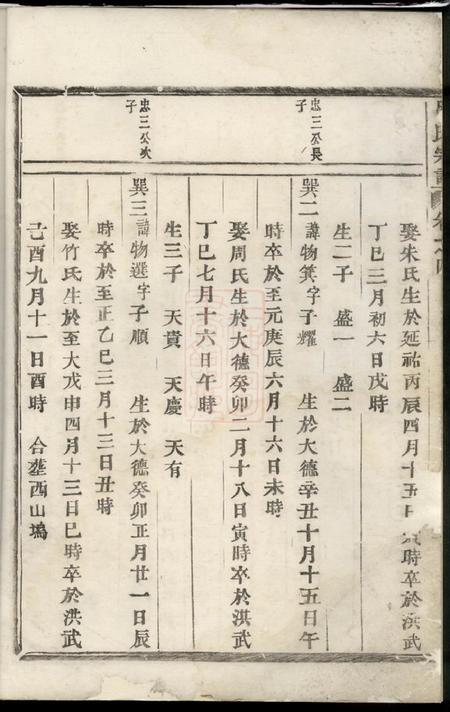 氏宗譜 卷之四
娶朱氏生於延祐丙辰四月十五日 時卒於洪武
丁巳三月初六日戌時
生二子 盛一 盛二
忠三公長子
巽二 諱物箕字子耀 生於大德辛丑十月十五日午
時卒於至元庚辰六月十六日未時
娶周氏生於大德癸卯二月十八日寅時卒於淇武
丁巳七月十六日午時
生三子 天貴 天慶 天有
忠三公次子
巽三 諱物選字子順 生於大德癸卯正月廿一日辰
時卒於至正乙巳三月十三日丑時
娶竹氏生於至大戊申四月十三日巳時卒於洪武
己酉九月十一日酉時 合塟西山塢